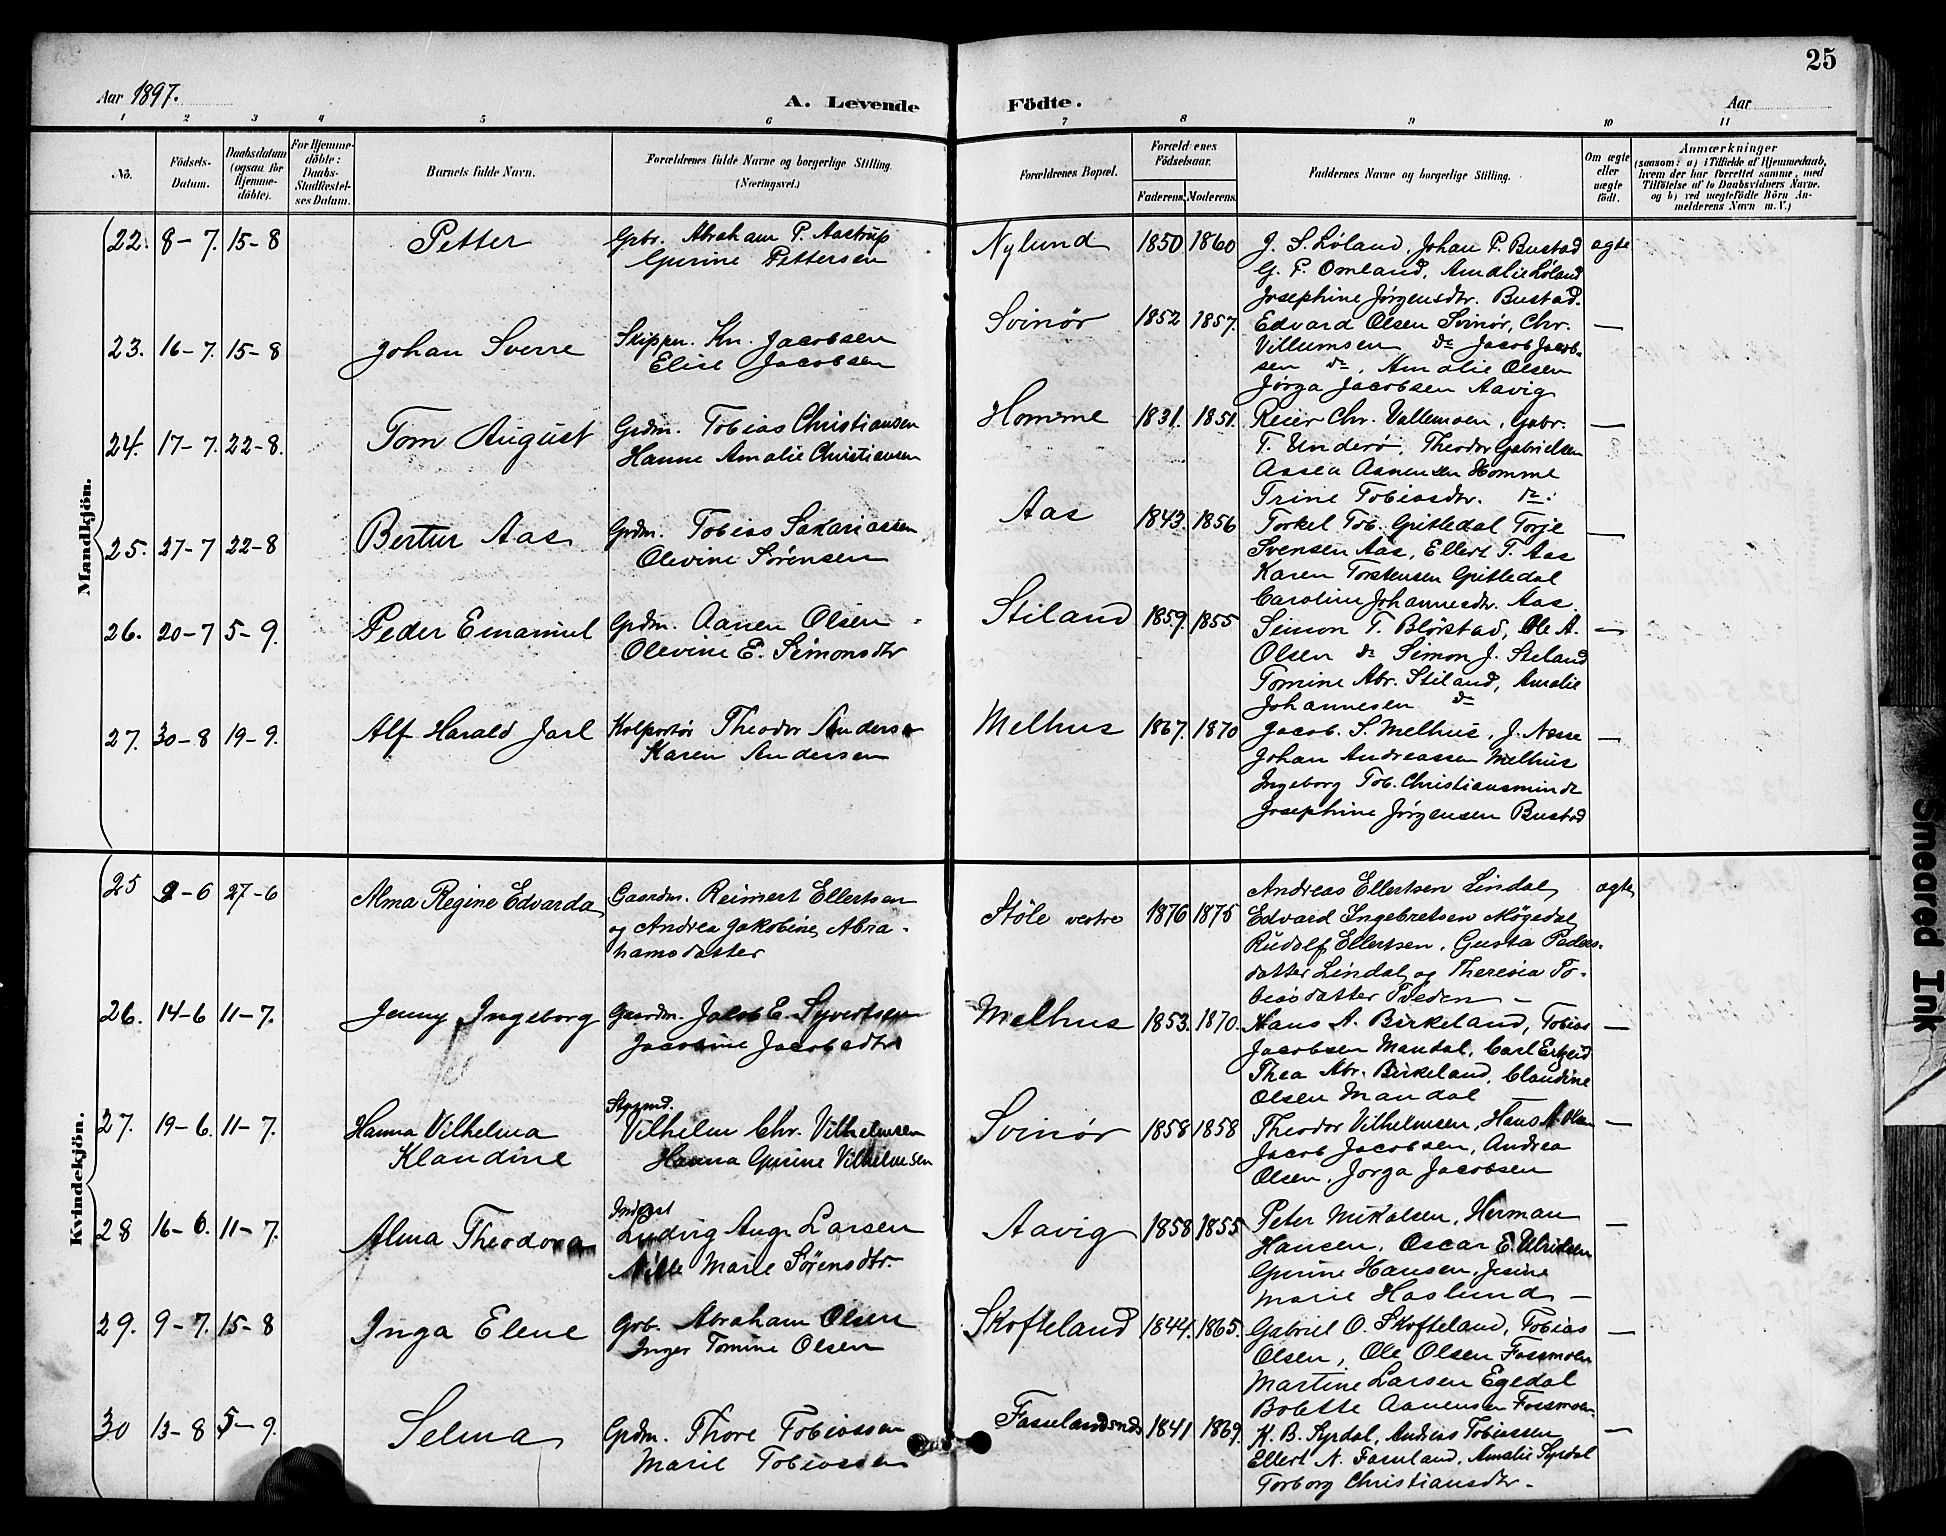 25
Aar 1897.
A. Levende Födte.
Aar
1 2 3 4 5 6 7 8 9 10 11
No.
Födsels-Datum.
Daabsdatum (ogsaa for Hjemmedöbte).
For Hjemmedöbte: Daabs-Stadfæstelses Datum.
Barnets fulde Navn.
Forældrenes fulde Navne og borgerlige Stilling. (Næringsvei.)
Forældrenes Bopæl.
Forældrenes Födselsaar.
Faderens. Moderens.
Faddernes Navne og borgerlige Stilling.
Om ægte eller uægte födt.
Anmærkninger
(saasom: a) i Tilfælde af Hjemmedaab, hvem der har forrettet samme, med Tilföielse af to Daabsvidners Navne, og b) ved uægtefödte Börn Anmelderens Navn m. V.)
Mandkjön.
22. 8-7. 15-8 Petter Grbr. Abraham P. Aastrup Nylund 1850. 1860 J. S. Løland, Johan P. Bustad ægte
Gurine Pettersen G. P. Omland, Amalie Løland
Josephine Jørgensdtr. Bustad.
23. 16-7. 15-8 Johan Sverre Skipper. Kn. Jacobsen Svinør 1852 1857. Edvard Olsen Svinør, Chr. —
Elise Jacobsen Villumsen do Jacob Jacob-
sen do, Amalie Olsen
Jørga Jacobsen Aavig
24. 17-7. 22-8. Tom August Grdm. Tobias Christiansen Homme 1831. 1851. Reier Chr. Vallemoen, Gabr. —
Hanne Amalie Christiansen T. Underø, Theodor Gabrielsen
Assea Aanensen Homme
Trine Tobiasdtr. do.
25. 27-7 22-8 Bertur Aas Grdm. Tobias Sakariassen Aas 1843. 1856 Torkel Tob. Gitledal Torje —
Olevine Sørensen Svensen Aas, Ellert T. Aas
Karen Torstensen Gitledal
Caroline Johannesdtr. Aas.
26. 20-7 5-9. Peder Emanuel Grdm. Aanen Olsen Stiland 1859. 1855 Simon T. Blørstad, Ole A. —
Olevine E. Simonsdtr Olsen do Simon J. Steland
Tomine Abr. Stiland, Amalie
Johannesen do
27. 30-8 19-9. Alf Harald Jarl Kolportør Theodor Anderse Melhus 1867. 1870 Jacob. S. Melhus, J. Næse —
Karen Andersen Johan Andreassen Melhus
Ingeborg Tob. Christiansminde
Josephine Jørgensen Bustad
Kvindekjön.
25 2-6 27-6 Alma Regine Edvarda Gaardm. Reimert Ellertsen Støle vestre 1876 1875 Andreas Ellertsen Lindal, ægte
og Andrea Jakobine Abra- Edvard Ingebretsen Møgedal
hamsdatter Rudolf Ellertsen, Gusta Peders-
datter Lindal, og Theresia To-
biasdatter Tveden —
26. 14-6 11-7. Jenny Ingeborg Gaardm. Jakob E. Syvertsen Melhus 1853. 1870. Hans A. Birkeland, Tobias —
Jacobine Jacobsdtr Jacobsen Mandal, Carl
Thea Abr. Birkeland, Claudine
Olsen Mandal
27. 19-6. 11-7. Hanna Vilhelma Vilhelm Chr. Vilhelmsen Svinør 1858 1858 Theodor Vilhelmsen, Hans A. —
Klaudine Hanna Gurine Vilhelmsen Jacob Jacobsen, Andrea
Olsen, Jorga Jacobsen
28 16-6. 11-7. Alma Theodora Ludvig Aug. Larsen Aavig 1858 1855 Peter Mikalsen, Herman —
Marie Sørensdtr. Hansen, Oscar E. Ulriksen
Gurine Hansen, Jesine
Marie Haslund —
29. 9-7. 15-8 Inga Elene Grb. Abraham Olsen Skofteland 1844. 1865. Gabriel O. Skofteland, Tobias —
Inger Tomine Olsen Olsen, Ole Olsen Fossmoen
Martine Larsen Egedal
Bolette Aanensen Fossmoen
30 13-8 5-9. Selma Grdm. Thore Tobiassen 1841 1869. K. B. Syrdal, Andreas Tobiassen —
Marie Tobiassen Ellert N. Fasseland, Amalie Syrdal
Torborg Christiansdtr. —
Smeared Ink